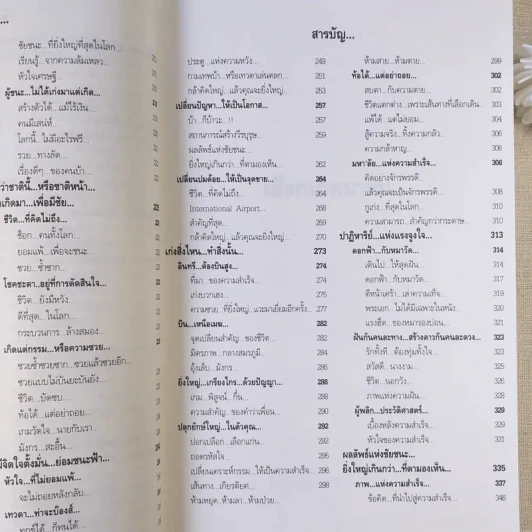 ...
ชัยชนะ...ที่ยิ่งใหญ่ที่สุดในโลก...
เรียนรู้...จากความล้มเหลว...
หัวใจเศรษฐี...
ผู้ชนะ...ไม่ได้เก่งมาแต่เกิด...
สร้างตัวได้...แม้ไร้เงิน...
คนมีเสน่ห์...
โลกนี้...ไม่มีอะไรฟรี...
รวย...ทางลัด...
เรื่องดีๆ...ของคนบ้า...
ว่าชาตินี้...หรือชาติหน้า...
เกิดมา...เพื่อมีชัย...
ชีวิต...ที่คิดไม่ถึง...
ช็อก...คนทั้งโลก...
ยอมแพ้...เพื่อจะชนะ...
ซวย...ซ้ำซาก...
โชคชะตา..อยู่ที่การตัดสินใจ...
ชีวิต...ยังมีหวัง...
ดีที่สุด...ในโลก...
กระบวนการ...ล้างสมอง...
เกิดแต่กรรม...หรือความซวย...
ซวยซ้ำซวยซาก...ซวยแล้วซวยอีก...
ซวยแบบไม่บันยะบันยัง...
ชีวิต...บัดซบ...
ท้อได้...แต่อย่าถอย...
เกมวัดใจ...นายกับเรา...
มังกร...สะอื้น...
จิตใจตั้งมั่น...ย่อมชนะฟ้า...
หัวใจ...ที่ไม่ยอมแพ้...
จะไม่ถอยหลังกลับ...
เทวดา...ท่าจะบ๊องส์...
ทุกข์ได้...ก็ทนได้...
สารบัญ...
ประตู...แห่งความหวัง... 249
กามเทพบ้า...หรือเทวดาเล่นตลก... 251
กล้าคิดใหญ่...แล้วคุณจะยิ่งใหญ่... 253
เปลี่ยนปัญหา...ให้เป็นโอกาส... 257
บ้า...ก็บ้าวะ...!! 257
สถานการณ์สร้างวีรบุรุษ... 259
ผลลัพธ์แห่งชัยชนะ...
ยิ่งใหญ่เกินกว่า...ที่ตามองเห็น... 262
เปลี่ยนปมด้อย...ให้เป็นจุดขาย... 264
ชีวิต...ที่คิดไม่ถึง... 264
International Airport... 268
สำคัญที่สุด... 269
กล้าคิดใหญ่...แล้วคุณจะยิ่งใหญ่... 270
เก่งสิ่งไหน...ทำสิ่งนั้น... 273
อินทรี...ต้องบินสูง... 274
ที่มา...ของความสำเร็จ... 274
เก่งบวกเฮง... 275
ความซวย...ที่ยิ่งใหญ่...แวะมาเยี่ยมอีกครั้ง... 277
บิน...เหนือเมฆ... 282
จุดเปลี่ยนสำคัญ...ของชีวิต... 282
มิตรภาพ...กลางสมรภูมิ... 284
อุ้งเล็บ...มังกร... 286
ยิ่งใหญ่...เกรียงไกร...ด้วยปัญญา... 288
เกม...พิสูจน์...กึ๋น... 288
ความสำคัญ...ของคำว่าเพื่อน... 290
ปลุกยักษ์ใหญ่...ในตัวคุณ... 292
ปอกเปลือก...เลือกแก่น... 292
ถอดรหัสใจ... 295
เปลี่ยนเคราะห์กรรม...ให้เป็นความสำเร็จ... 296
เส้นทาง...เกียรติยศ... 298
ห้ามหยุด...ห้ามลา...ห้ามป่วย...
ห้ามสาย...ห้ามตาย... 299
ท้อได้...แต่อย่าถอย... 302
สบตา...กับความตาย... 302
ชีวิตแตกต่าง...เพราะเส้นทางที่เลือกเดิน... 303
แพ้ได้...แต่ไม่ยอม... 304
สู้ความจริง...ทิ้งความกลัว... 306
ความกล้าหาญ... 306
มหา'ลัย...แห่งความสำเร็จ... 308
คิดอย่างจักรพรรดิ...
แล้วคุณจะเป็นจักรพรรดิ... 308
กูเก่ง...ที่สุดในโลก... 310
ความสามารถ...สำคัญกว่ากระดาษ... 310
ปาฏิหาริย์...แห่งแรงจูงใจ... 313
ดอกฟ้า...กับหมาวัด... 314
เดินไป...ให้สุดฝัน... 314
ดอกฟ้า...กับหมาวัด... 317
ตีหน้าเศร้า...เล่าความเท็จ... 319
พระเอก...ไม่ได้มีเฉพาะในหนัง... 320
แรงฮึด...ของหมาจรจัด... 321
ฝันกันคนละทาง...สร้างดาวกันคนละดวง... 323
รักทั้งที...ต้องทุ่มทั้งใจ... 323
สวัสดี...นางงาม... 325
ชีวิต...นอกวัง... 326
ภาพแห่งความฝัน... 328
ผู้พลิก...ประวัติศาสตร์... 329
เบื้องหลังความสำเร็จ... 329
หัวใจของความสำเร็จ... 331
ผลลัพธ์แห่งชัยชนะ...
ยิ่งใหญ่เกินกว่า...ที่ตามองเห็น... 335
ภาพ...แห่งความสำเร็จ... 337
ข้อคิด...ที่นำไปสู่ความสำเร็จ... 346